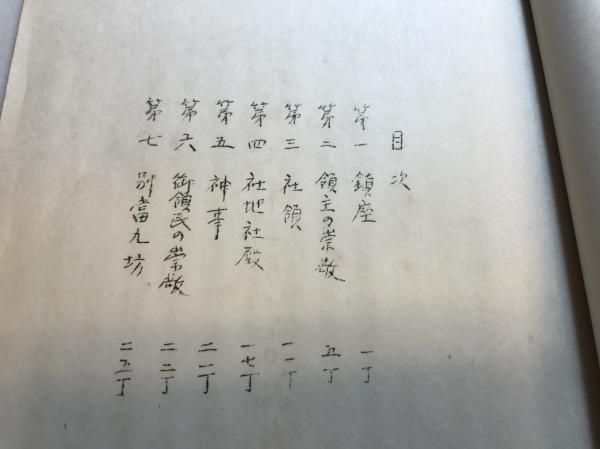 目次
第一 鎮座 一丁
第二 領主の崇敬 五丁
第三 社領 一一丁
第四 社地社殿 一七丁
第五 神事 二一丁
第六 御領民の崇敬 二二丁
第七 別當九坊 二五丁